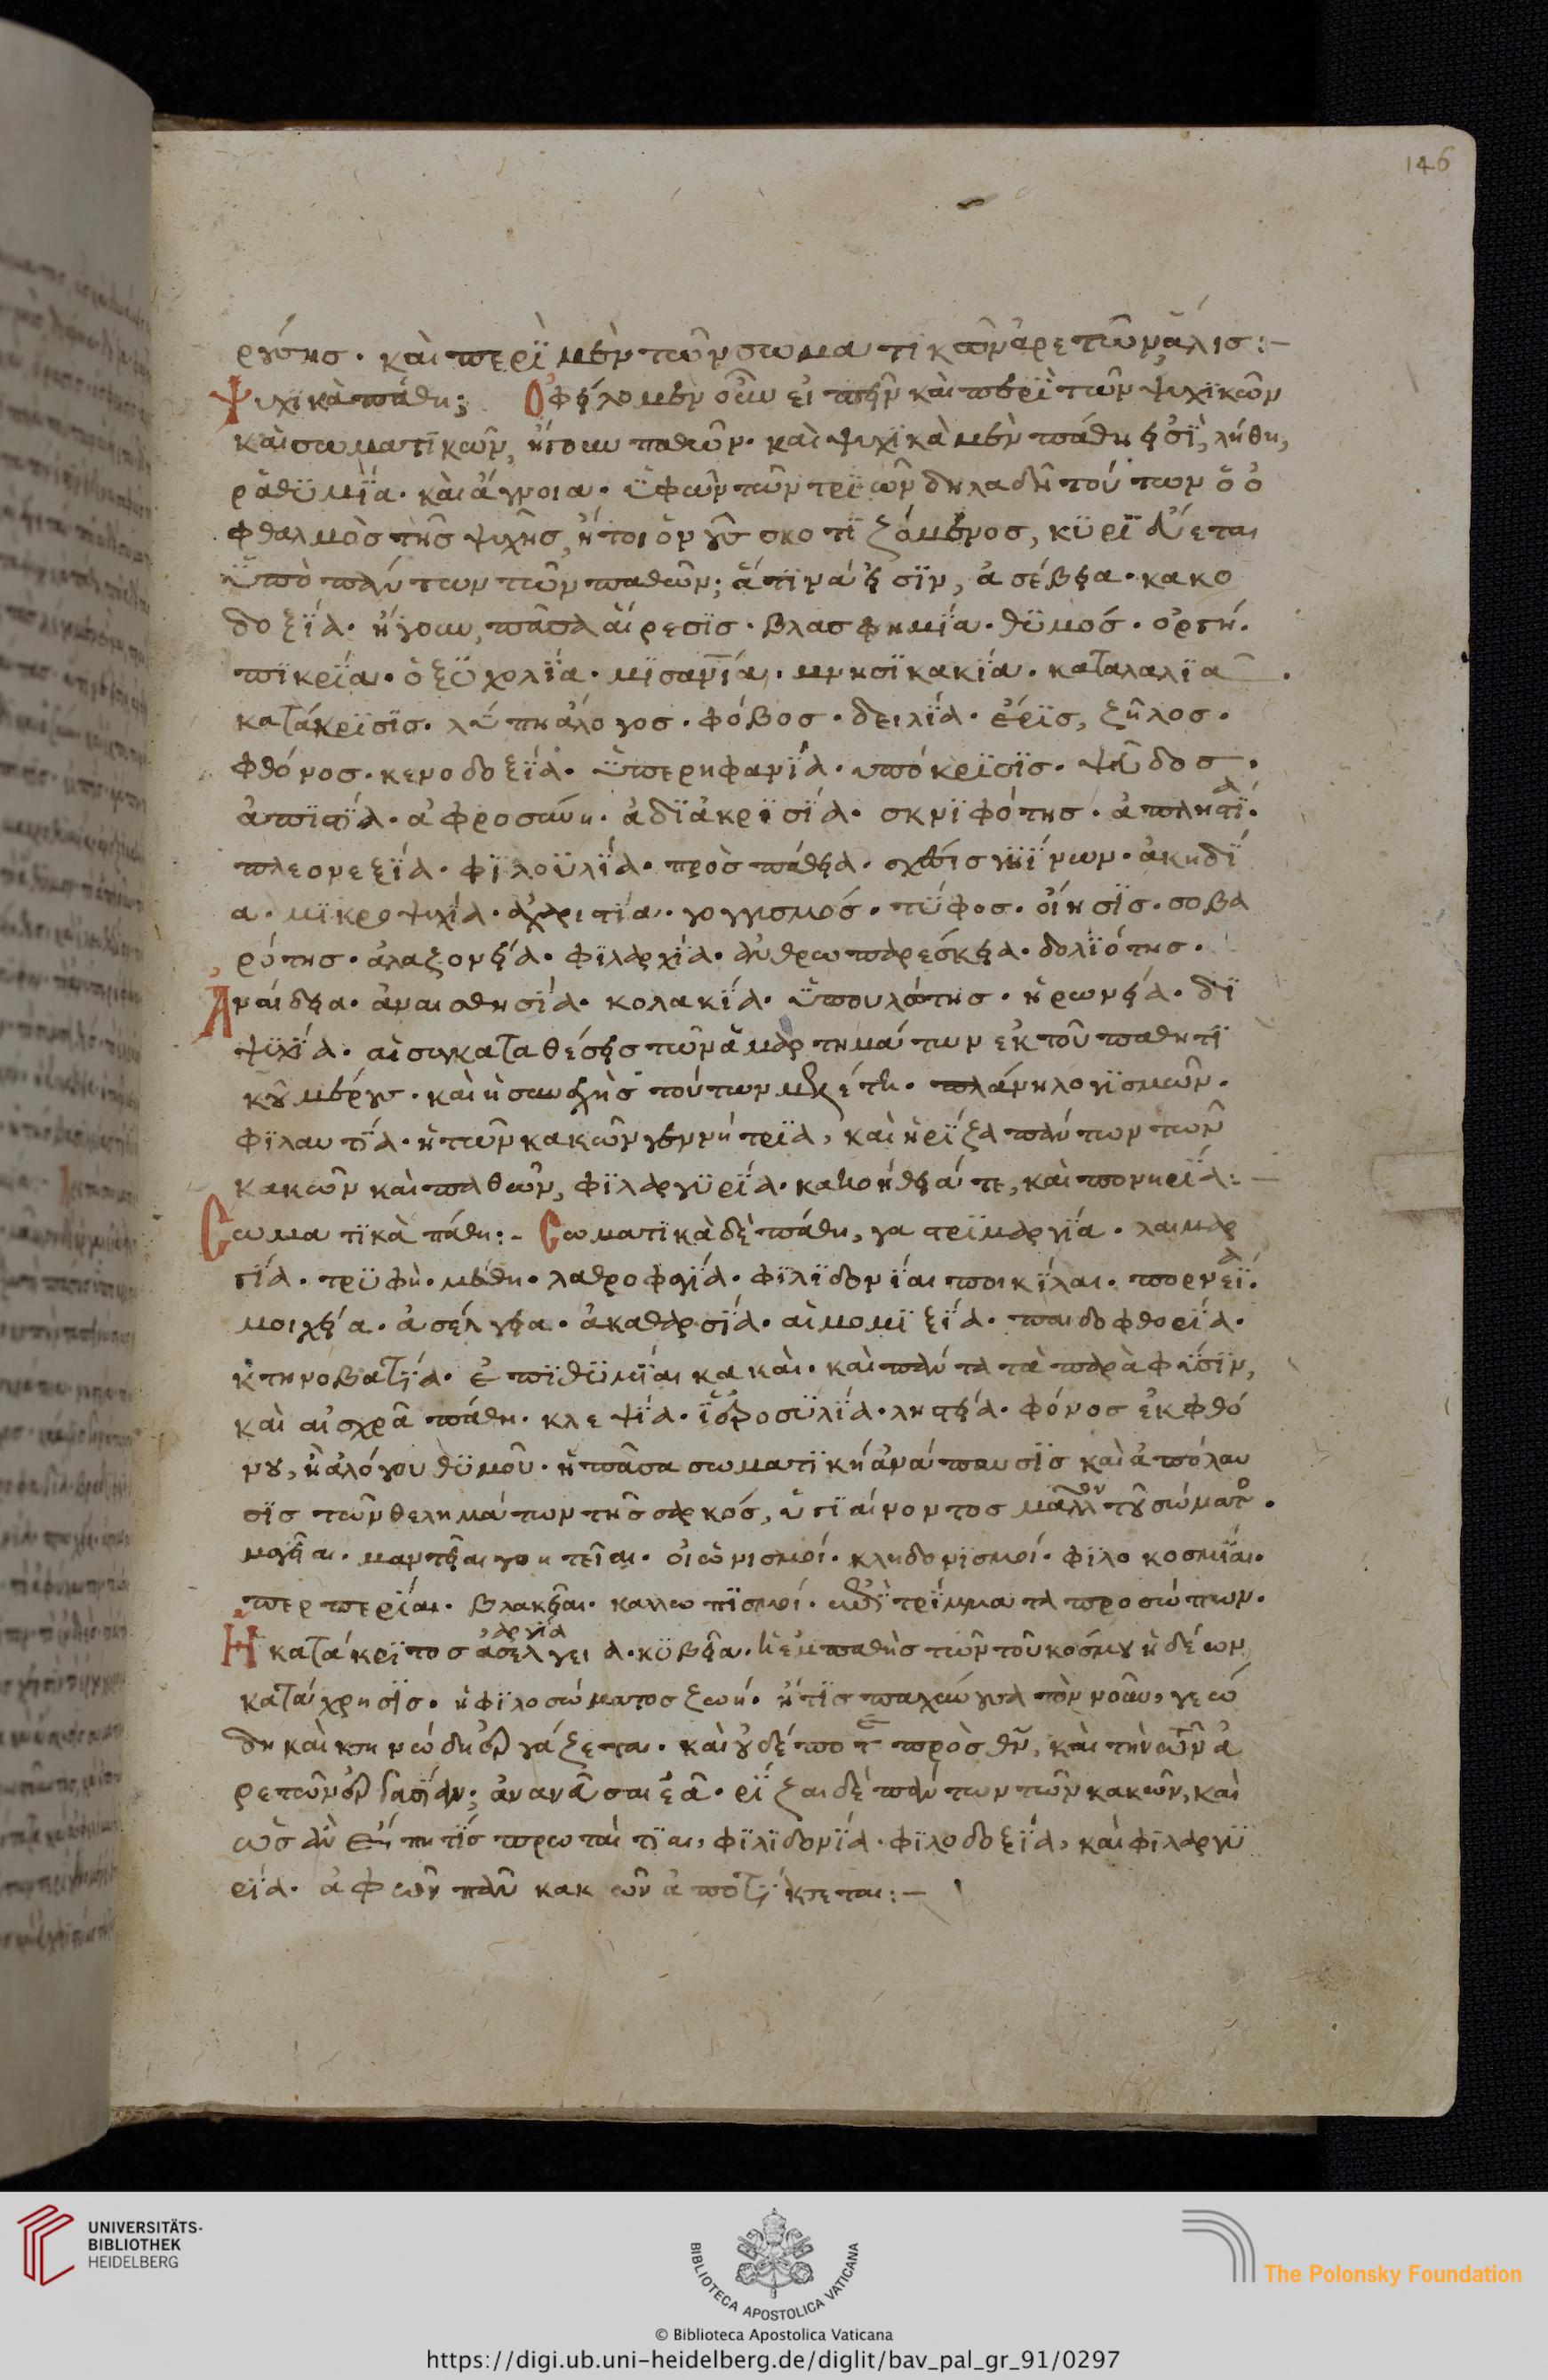 146
ρούσης· καὶ περὶ μὲν τῶν σωματικῶν ἀρετῶν ἅλις:–
Ψυχϊκὰ πάθη; Ὀφείλομεν οὖν εἰπεῖν καὶ περὶ τῶν ψυχϊκῶν
καὶ σωματϊκῶν, ἤγουν παθῶν· καὶ ψυχϊκὰ μὲν πάθη εἰσὶ, λήθη,
ῥαθϋμΐα· καὶ ἄγνοια· ὑφ' ὧν τῶν τριῶν δηλαδὴ τούτων ὁ ὀ
φθαλμὸς τῆς ψυχῆς, ἤτοι ὁ νοῦς σκοτϊζόμενος, κϋρϊεύεται
ὑπὸ πάντων τῶν παθῶν; ἅτινά εἰσϊν, ἀσέβεια· κακο
δοξΐα· ἤγουν, πᾶσα αἵρεσϊς· βλασφημΐα· θϋμός· ὀργή·
πϊκρΐα· ὀξϋχολΐα· μϊσανΐα· μνησϊκακΐα· καταλαλϊα ·
κατάκρϊσϊς· λύπη ἄλογος· φόβος· δειλΐα· ἔρϊς, ζῆλος·
φθόνος· κενοδοξΐα· ὑπερηφανΐα· υπόκρϊσϊς· ψεῦδος·
ἀπϊστΐα· ἀφροσύνη· ἀδϊακρϊσΐα· σκνϊφότης· ἀπληστΐα·
πλεονεξΐα· φϊλοϋλΐα· προσπάθεια· σχέσις γηΐνων· ἀκηδΐ
α· μϊκροψυχΐα· ἀχαριστΐα· γογγυσμός· τῦφος· οἴησϊς· σοβα
ρότης· ἀλαζονεία· φϊλαρχΐα· ἀνθρωπαρέσκεια· δολϊότης·
Ἀναίδεια· ἀναισθησΐα· κολακΐα· ὑπουλότης· ἠρωνεία· δϊ
ψυχΐα· αἱ συγκαταθέσεις τῶν ἁμαρτημάτων ἐκ τοῦ παθητϊ
κοῦ μέρους· καὶ ἡ συνεχὴς τούτων μελέτη· πλάνη λογϊσμῶν·
φϊλαυτΐα· ἡ τῶν κακῶν γεννήτρϊα, καὶ ἡ ρίζα πάντων τῶν
κακῶν καὶ παθῶν, φϊλαργϋρΐα· κακοήθειά τε, καὶ πονηρΐα:–
Σωματϊκὰ πάθη:– Σωματϊκὰ δὲ πάθη, γαστρϊμαργΐα· λαιμαρ
γΐα· τρϋφὴ· μέθη· λαθροφαγΐα· φϊλϊδονΐαι ποικΐλαι· πορνεΐα·
μοιχεία· ἀσέλγεια· ἀκαθαρσΐα· αἱμομϊξΐα· παιδοφθορΐα·
κτηνοβατΐα· ἐπϊθϋμΐαι κακαὶ· καὶ πάντα τὰ παρὰ φύσϊν,
καὶ αἰσχρᾶ πάθη· κλεψΐα· ϊεροσϋλΐα· ληστεία· φόνος ἐκ φθό
νου, ἢ ἀλόγου θϋμοῦ· ἡ πᾶσα σωματϊκὴ ἀνάπαυσϊς καὶ ἀπόλαυ
σϊς τῶν θελημάτων τῆς σαρκός, ὑγϊαίνοντος μᾶλλον τοῦ σώματος·
μαγεῖαι· μαντεῖαι γοητεῖαι· οἰωνισμοί· κληδονϊσμοί· φϊλοκοσμΐαι·
περπερΐαι· βλακεῖαι· καλλωπϊσμοί· ἐπϊτρίμματα προσώπων·
Ἡ κατάκρϊτος ἀργϊα ἀσέλγεια· κϋβεῖα· ἡ ἐμπαθὴς τῶν τοῦ κόσμου ἡδέων
κατάχρησϊς· ἡ φϊλοσώματος ζωή· ἥτϊς παχύνουσα τὸν νοῦν, γεώ
δη καὶ κτηνώδη ἐργάζεται· καὶ οὐδέποτε πρὸς θν, καὶ τὴν τῶν ἀ
ρετῶν ἐργασΐαν; ἀνανεῦσαι ἐᾶ· ρΐζαι δὲ πάντων τῶν κακῶν, καὶ
ὡς ἂν εἴπη τϊς πρωταὶτϊαι, φϊλϊδονΐα· φϊλοδοξΐα, καὶ φϊλαργϋ
ρΐα· ἀφ ὧν πᾶν κακῶν ἀποτΐκτεται:–
UNIVERSITÄTS-
BIBLIOTHEK
HEIDELBERG
BIBLIOTECA APOSTOLICA VATICANA
The Polonsky Foundation
© Biblioteca Apostolica Vaticana
https://digi.ub.uni-heidelberg.de/diglit/bav_pal_gr_91/0297